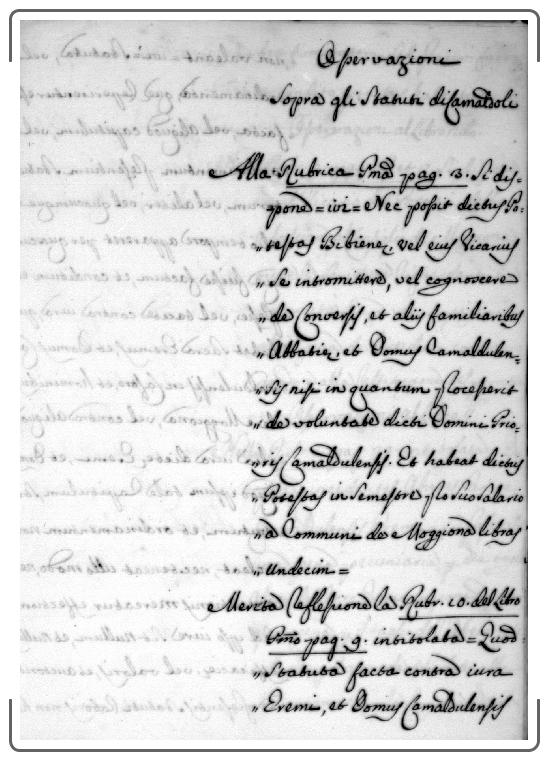 Osservazioni
Sopra gli Statuti di Camaldoli
Alla Rubrica Pma pag. 3. Si dis-
pone = ivi = Nec possit dictus Po-
" testas Bibiene, vel eius Vicarius
" Se intromittere, vel cognoscere
" de Conversis, et aliis familiaribus
" Abbatie, et Domus Camaldulen-
" sis nisi in quantum procederet
" de voluntate dicti Domini Prio-
" ris Camaldulensis. Et habeat dictus
" Potestas in Semestre pro suo Salario
" a Communi de Moggiona libras
" undecim =
Merita reflessione la Rubr. 10. del Libro
Pmo pag. 9. intitolata = Quod
" Statuta facta contra iura
" Eremi, et Domus Camaldulensis